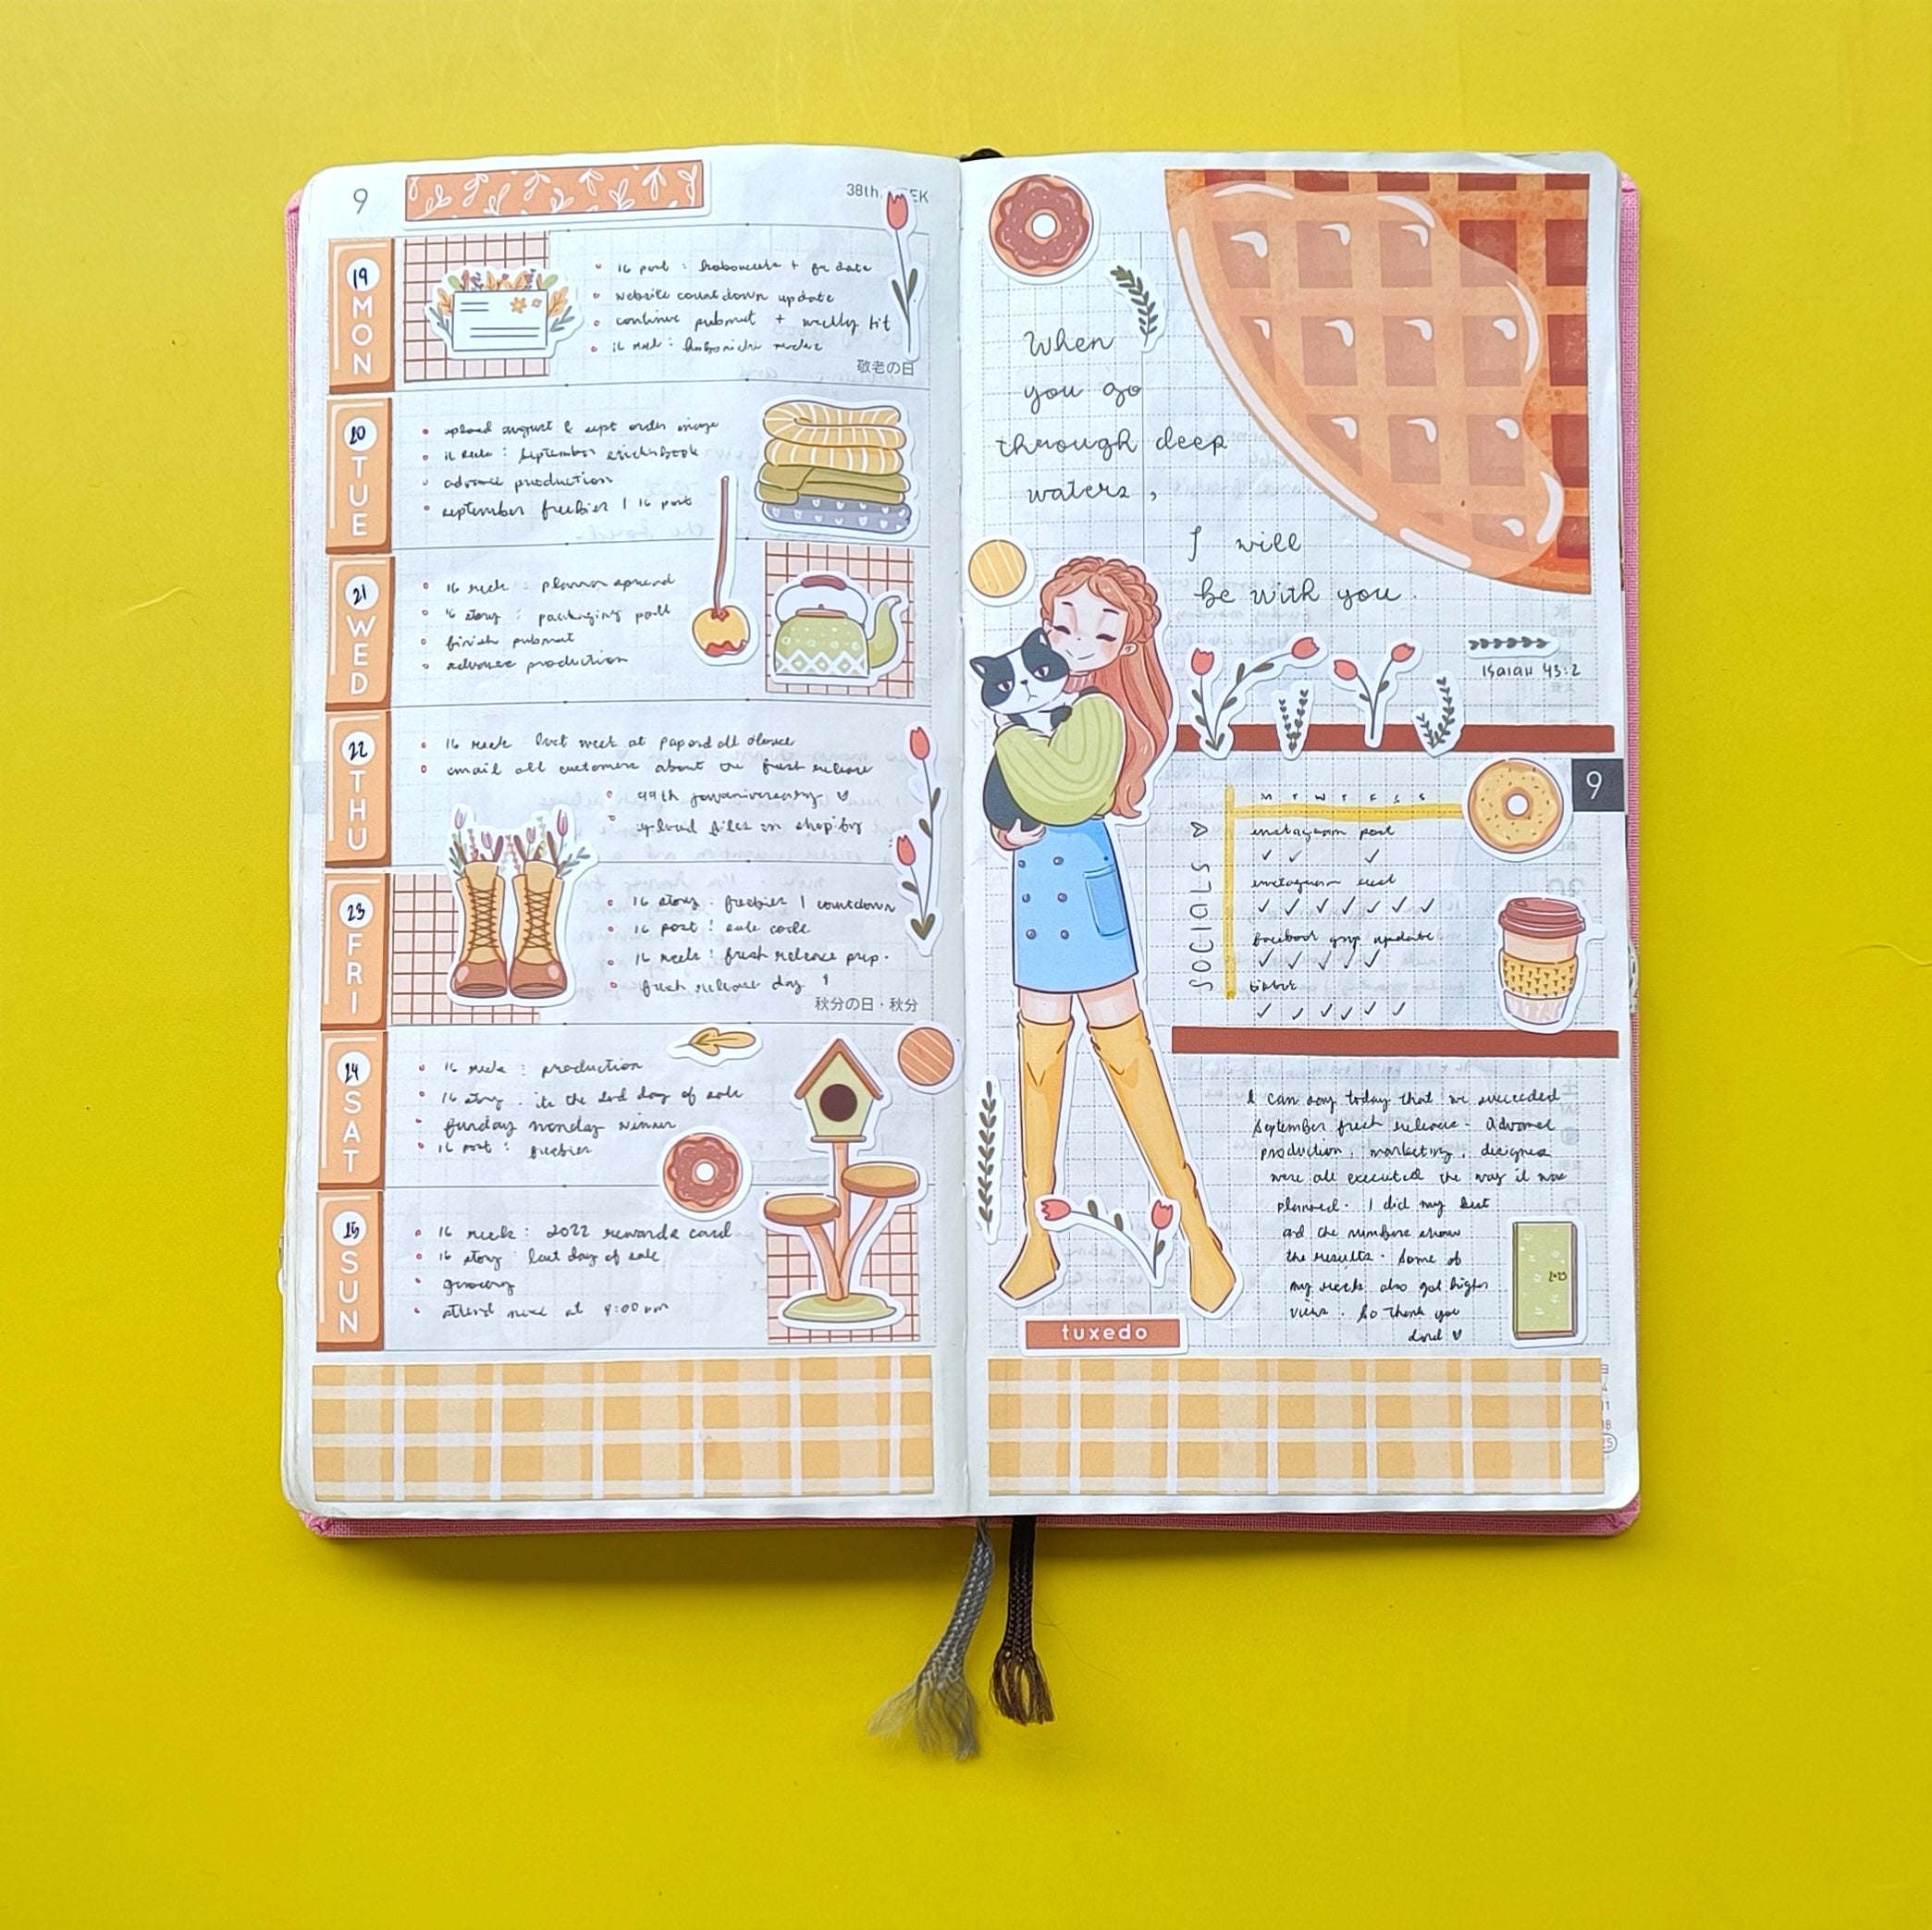 9
38th
19
MON
IG post : hobonichi + fr date
website countdown update
continue pubmat + weekly kit
IG reel : hobonichi weeks
敬老の日
20
TUE
upload august & sept order
IG reel : september stickerbook
advance production
september freebies | IG post
21
WED
IG reel : planner spread
IG story : packaging poll
finish pubmat
advance production
22
THU
IG reel last week at
email all customers about the fresh release
49th
upload files in shopify
23
FRI
IG story : freebies | countdown
IG post : sale code
IG reels : fresh release prep.
fresh release day !
秋分の日・秋分
24
SAT
IG reel : production
IG story : its the 2nd day of sale
funday monday winner
IG post : freebies
25
SUN
IG reel : 2022 rewards card
IG story : last day of sale
grocery
attend at
When
you go
through deep
waters,
I will
be with you.
Isaiah 43:2
9
SOCIALS
M T W T F S S
instagram post
✓ ✓ ✓
instagram reel
✓ ✓ ✓ ✓ ✓ ✓ ✓
facebook grp update
✓ ✓ ✓ ✓ ✓
tiktok
✓ ✓ ✓ ✓ ✓ ✓
I can say today that we succeeded
September fresh release. Advance
production, marketing, designs
were all executed the way it was
planned. I did my best
and the numbers show
the results. Some of
my reels also got higher
views. So thank you
Lord ♥
2023
tuxedo
11
18
25